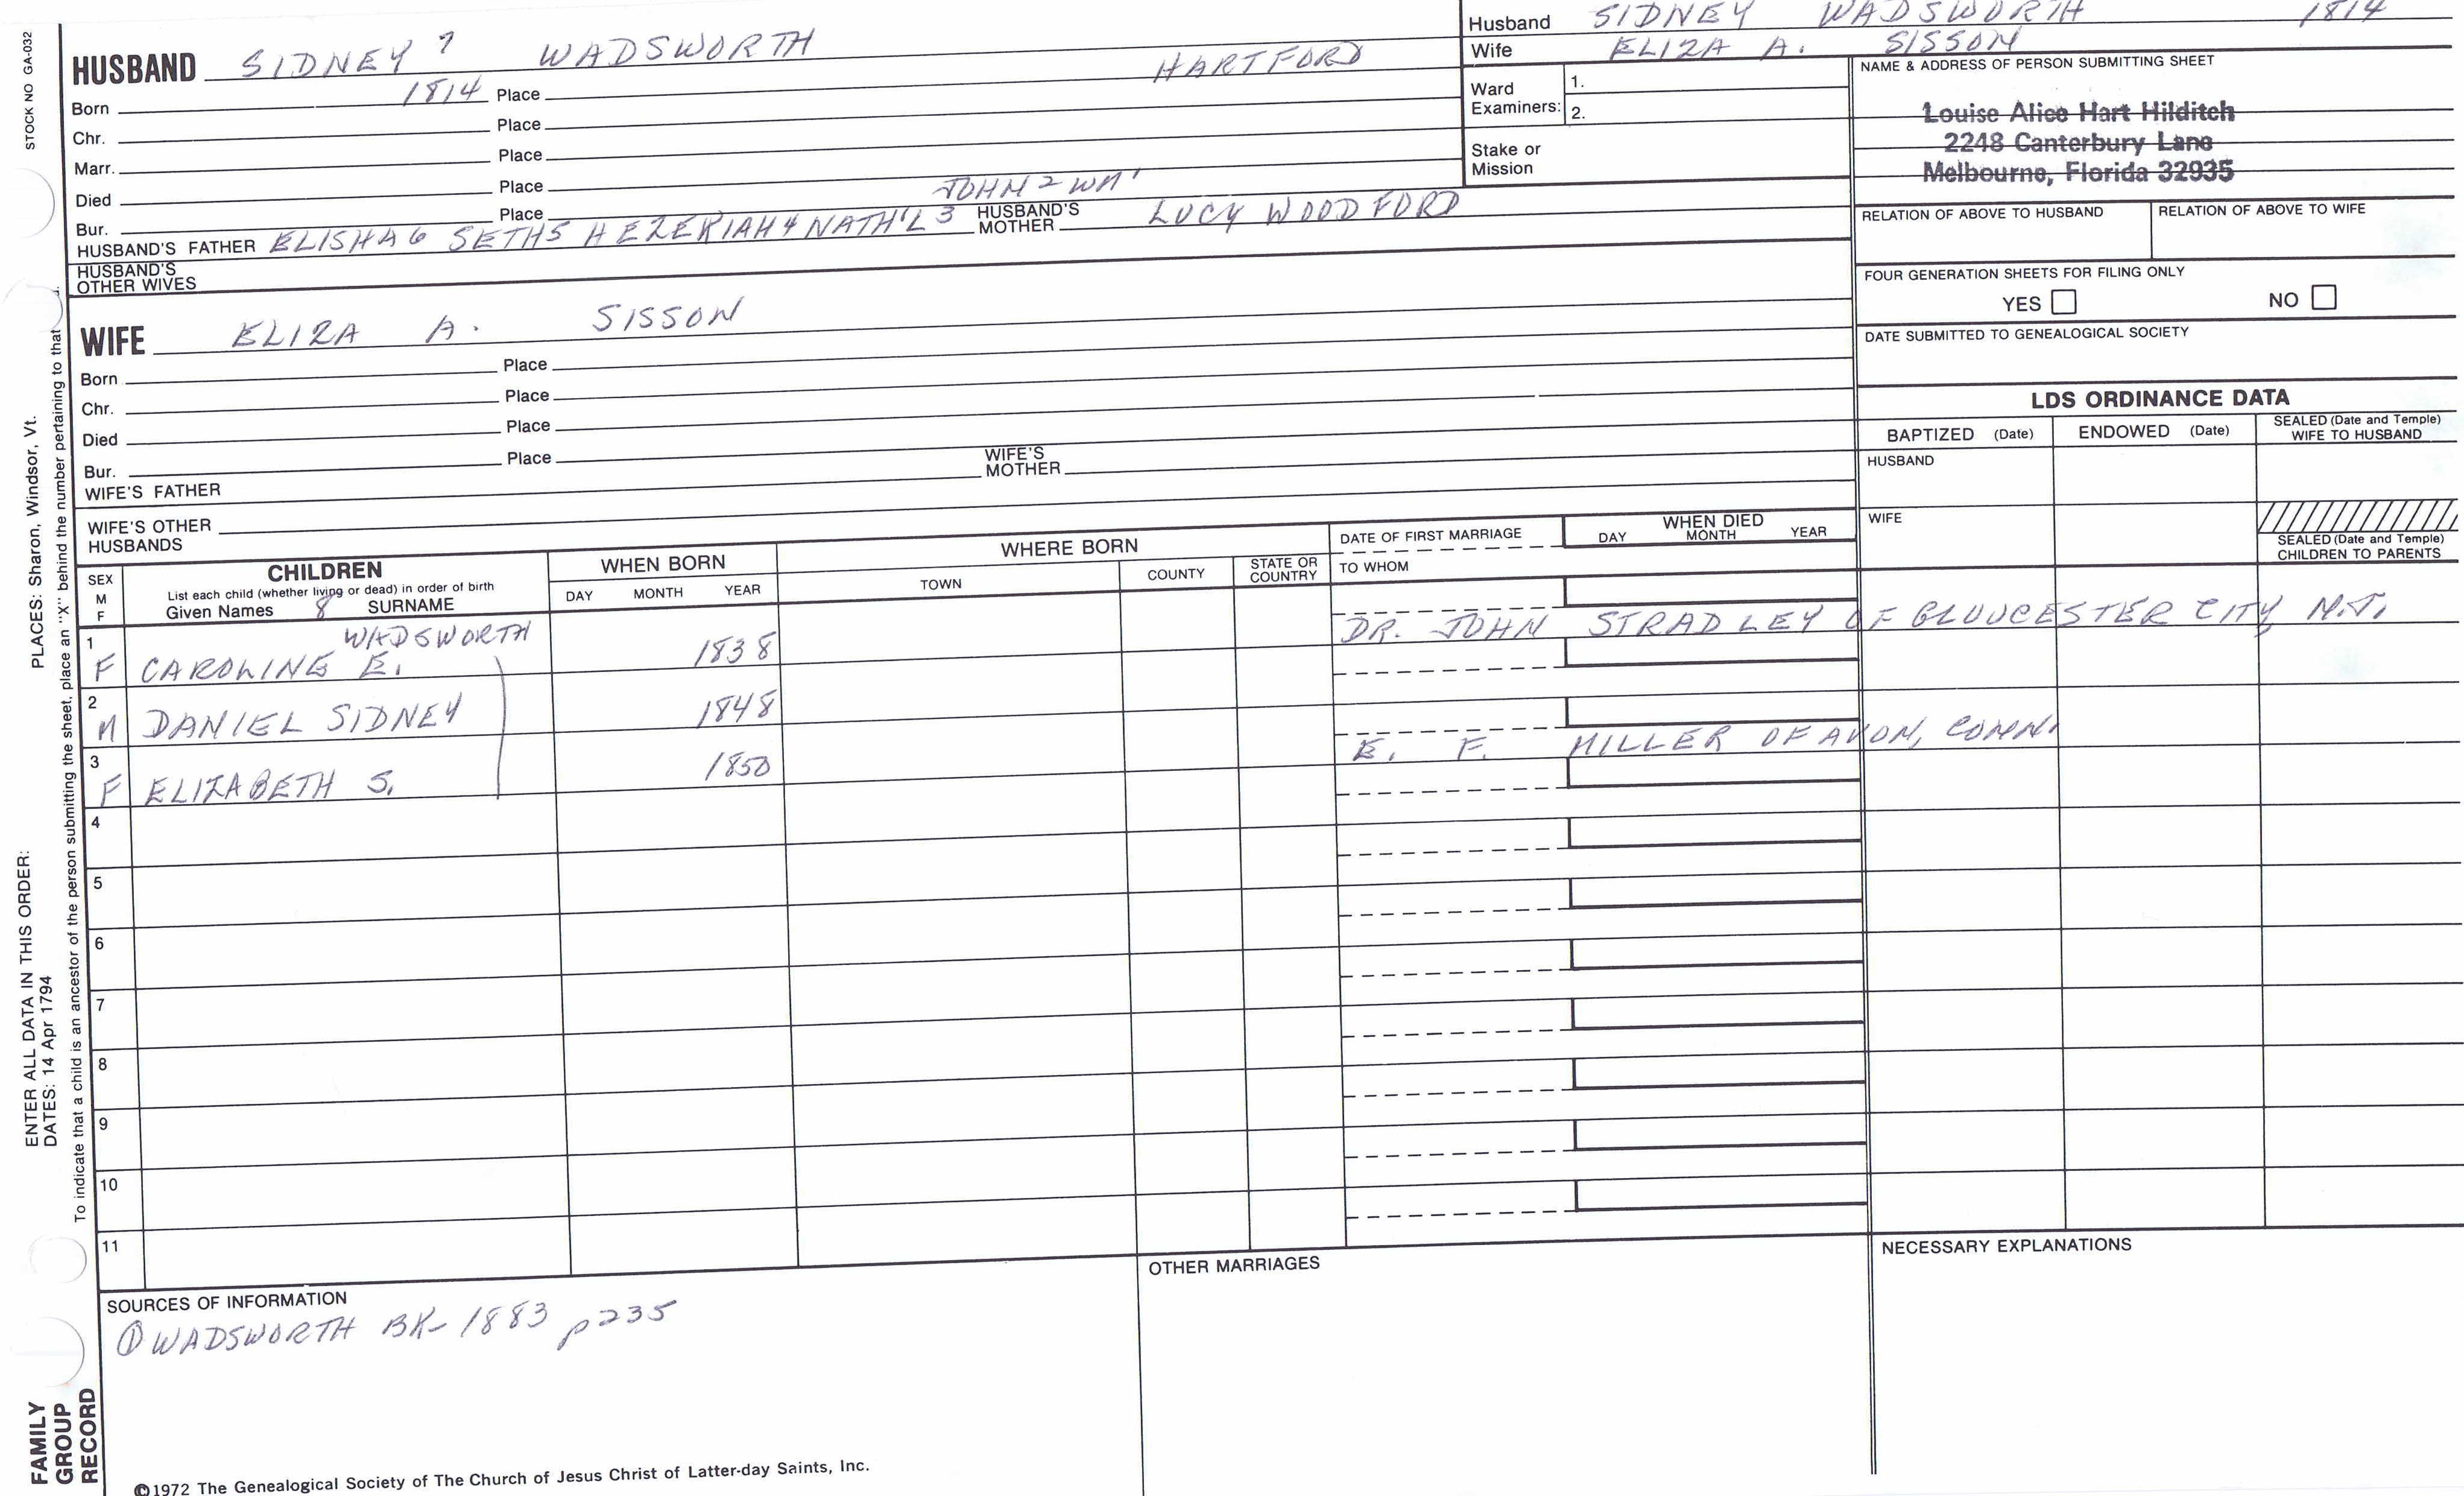 STOCK NO GA-032
PLACES: Sharon, Windsor, Vt.
ENTER ALL DATA IN THIS ORDER:
DATES: 14 Apr 1794
To indicate that a child is an ancestor of the person submitting the sheet, place an "X" behind the number pertaining to that
FAMILY
GROUP
RECORD
HUSBAND SIDNEY 7 WADSWORTH
Born 1814 Place HARTFORD
Chr. Place
Marr. Place
Died Place
Bur. Place JOHN 2 WM 1
HUSBAND'S FATHER ELISHA 6 SETH 5 HEZEKIAH 4 NATH'L 3 HUSBAND'S MOTHER LUCY WOODFORD
HUSBAND'S
OTHER WIVES
WIFE ELIZA A. SISSON
Born Place
Chr. Place
Died Place
Bur. Place
WIFE'S FATHER WIFE'S MOTHER
WIFE'S OTHER
HUSBANDS
Husband SIDNEY WADSWORTH 1814
Wife ELIZA A. SISSON
Ward
Examiners: 1.
2.
Stake or
Mission
NAME & ADDRESS OF PERSON SUBMITTING SHEET
Louise Alice Hart Hilditch
2248 Canterbury Lane
Melbourne, Florida 32935
RELATION OF ABOVE TO HUSBAND RELATION OF ABOVE TO WIFE
FOUR GENERATION SHEETS FOR FILING ONLY
YES NO
DATE SUBMITTED TO GENEALOGICAL SOCIETY
LDS ORDINANCE DATA
BAPTIZED (Date) ENDOWED (Date) SEALED (Date and Temple)
WIFE TO HUSBAND
HUSBAND
WIFE
SEALED (Date and Temple)
CHILDREN TO PARENTS
SEX
M
F
CHILDREN
List each child (whether living or dead) in order of birth
Given Names 8 SURNAME
WHEN BORN
DAY MONTH YEAR
WHERE BORN
TOWN COUNTY STATE OR COUNTRY
DATE OF FIRST MARRIAGE
TO WHOM
WHEN DIED
DAY MONTH YEAR
1 WADSWORTH
F CAROLINE E. 1838 DR. JOHN STRADLEY OF GLOUCESTER CITY, N.J.
2
M DANIEL SIDNEY 1848
3
F ELIZABETH S. 1850 E. F. MILLER OF AVON, CONN.
4
5
6
7
8
9
10
11
SOURCES OF INFORMATION
① WADSWORTH BK- 1883 p 235
OTHER MARRIAGES
NECESSARY EXPLANATIONS
©1972 The Genealogical Society of The Church of Jesus Christ of Latter-day Saints, Inc.